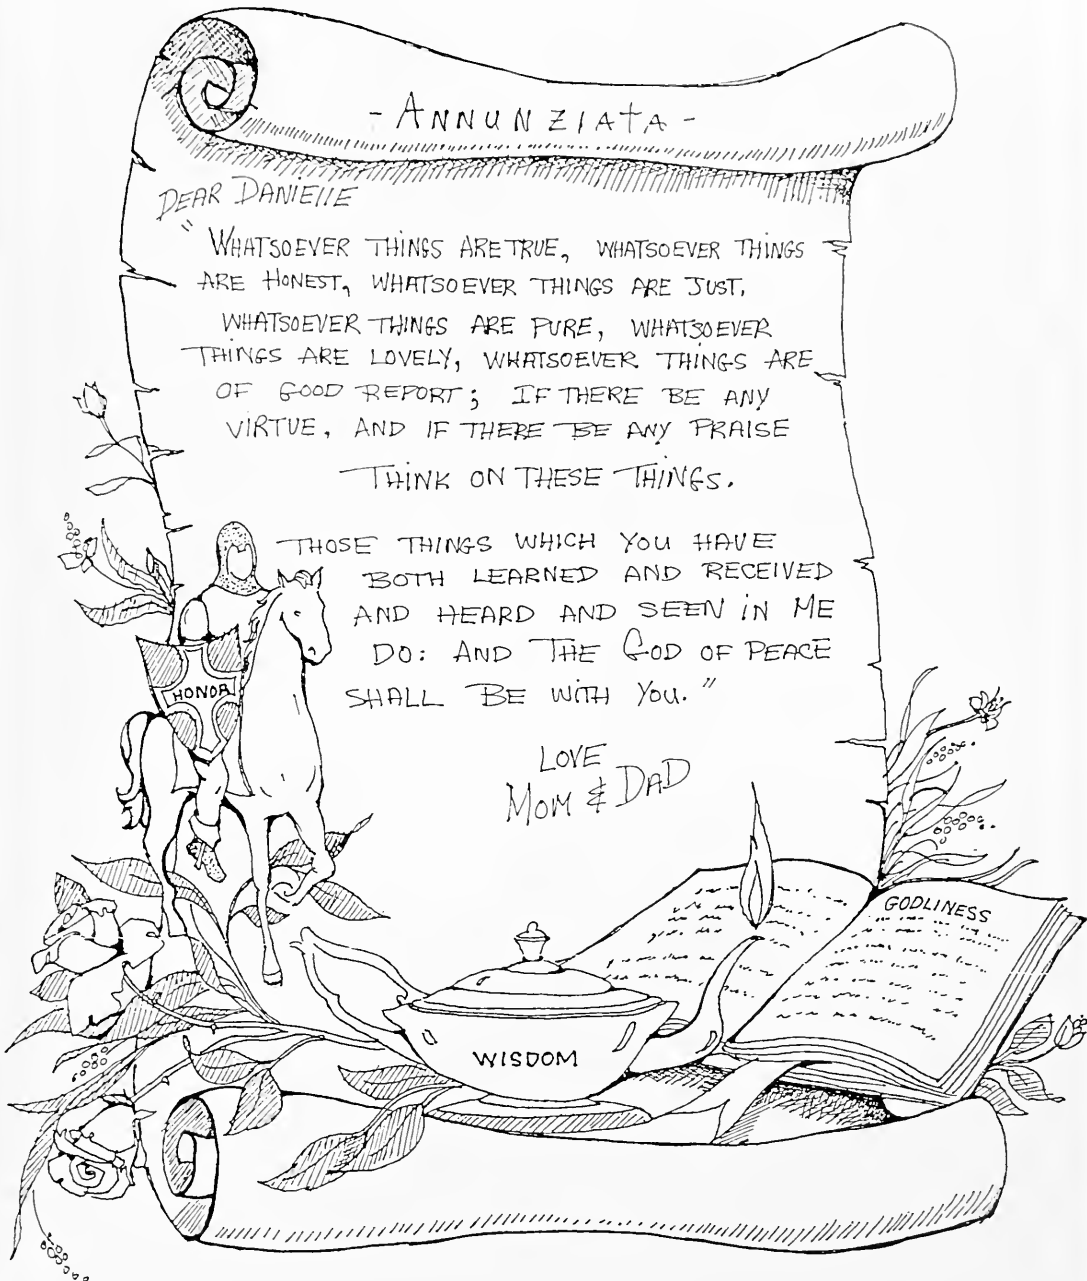 - ANNUNZIATA -
DEAR DANIELLE
" WHATSOEVER THINGS ARE TRUE, WHATSOEVER THINGS
ARE HONEST, WHATSOEVER THINGS ARE JUST,
WHATSOEVER THINGS ARE PURE, WHATSOEVER
THINGS ARE LOVELY, WHATSOEVER THINGS ARE
OF GOOD REPORT; IF THERE BE ANY
VIRTUE, AND IF THERE BE ANY PRAISE
THINK ON THESE THINGS.
THOSE THINGS WHICH YOU HAVE
BOTH LEARNED AND RECEIVED
AND HEARD AND SEEN IN ME
DO: AND THE GOD OF PEACE
SHALL BE WITH YOU."
LOVE
MOM & DAD
HONOR
GODLINESS
WISDOM